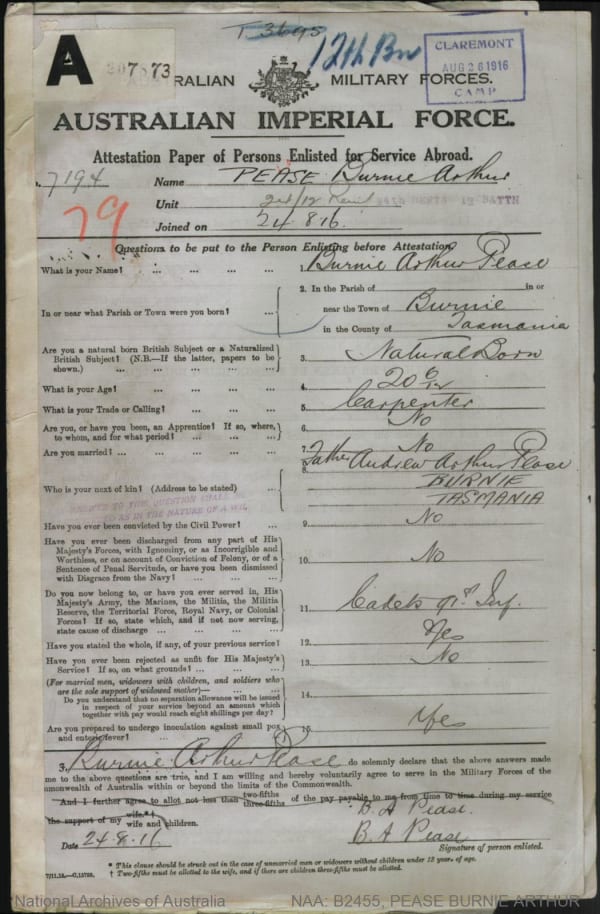 T 3695
12th Bn
CLAREMONT
AUG 26 1916
CAMP
A
RALIAN MILITARY FORCES.
AUSTRALIAN IMPERIAL FORCE.
Attestation Paper of Persons Enlisted for Service Abroad.
7194
Name PEASE Burnie Arthur
79
Unit 12 BATTN
Joined on 24 8 16.
Questions to be put to the Person Enlisting before Attestation.
What is your Name? ... ... ... ... 1. Burnie Arthur Pease
2. In the Parish of in or
In or near what Parish or Town were you born? ... near the Town of Burnie
in the County of Tasmania
Are you a natural born British Subject or a Naturalized
British Subject? (N.B.—If the latter, papers to be
shown.) ... ... ... ... 3. Natural Born
What is your Age? ... ... ... ... 4. 20 6/12
What is your Trade or Calling? ... ... ... 5. Carpenter
Are you, or have you been, an Apprentice? If so, where,
to whom, and for what period? ... ... ... 6. No
Are you married? ... ... ... ... 7. No
8. Father Andrew Arthur Pease
Who is your next of kin? (Address to be stated) ... BURNIE
TASMANIA
Have you ever been convicted by the Civil Power? ... 9. No
Have you ever been discharged from any part of His
Majesty's Forces, with Ignominy, or as Incorrigible and
Worthless, or on account of Conviction of Felony, or of a
Sentence of Penal Servitude, or have you been dismissed
with Disgrace from the Navy? ... ... ... 10. No
Do you now belong to, or have you ever served in, His
Majesty's Army, the Marines, the Militia, the Militia
Reserve, the Territorial Force, Royal Navy, or Colonial
Forces? If so, state which, and if not now serving,
state cause of discharge ... ... ... 11. Cadets 91st Inf.
Have you stated the whole, if any, of your previous service? 12. Yes
Have you ever been rejected as unfit for His Majesty's
Service? If so, on what grounds? ... ... 13. No
(For married men, widowers with children, and soldiers who
are the sole support of widowed mother)—
Do you understand that no separation allowance will be issued
in respect of your service beyond an amount which
together with pay would reach eight shillings per day? 14.
Are you prepared to undergo inoculation against small pox
and enteric fever? ... ... ... 15. Yes
Burnie Arthur Pease do solemnly declare that the above answers made
me to the above questions are true, and I am willing and hereby voluntarily agree to serve in the Military Forces of the
ommonwealth of Australia within or beyond the limits of the Commonwealth.
And I further agree to allot not less than two-fifths three-fifths of the pay payable to me from time to time during my service
the support of my wife.*† wife and children. B. A Pease.
Date 24.8.16 B. A Pease
Signature of person enlisted.
* This clause should be struck out in the case of unmarried men or widowers without children under 18 years of age.
† Two-fifths must be allotted to the wife, and if there are children three-fifths must be allotted.
National Archives of Australia NAA: B2455, PEASE BURNIE ARTHUR